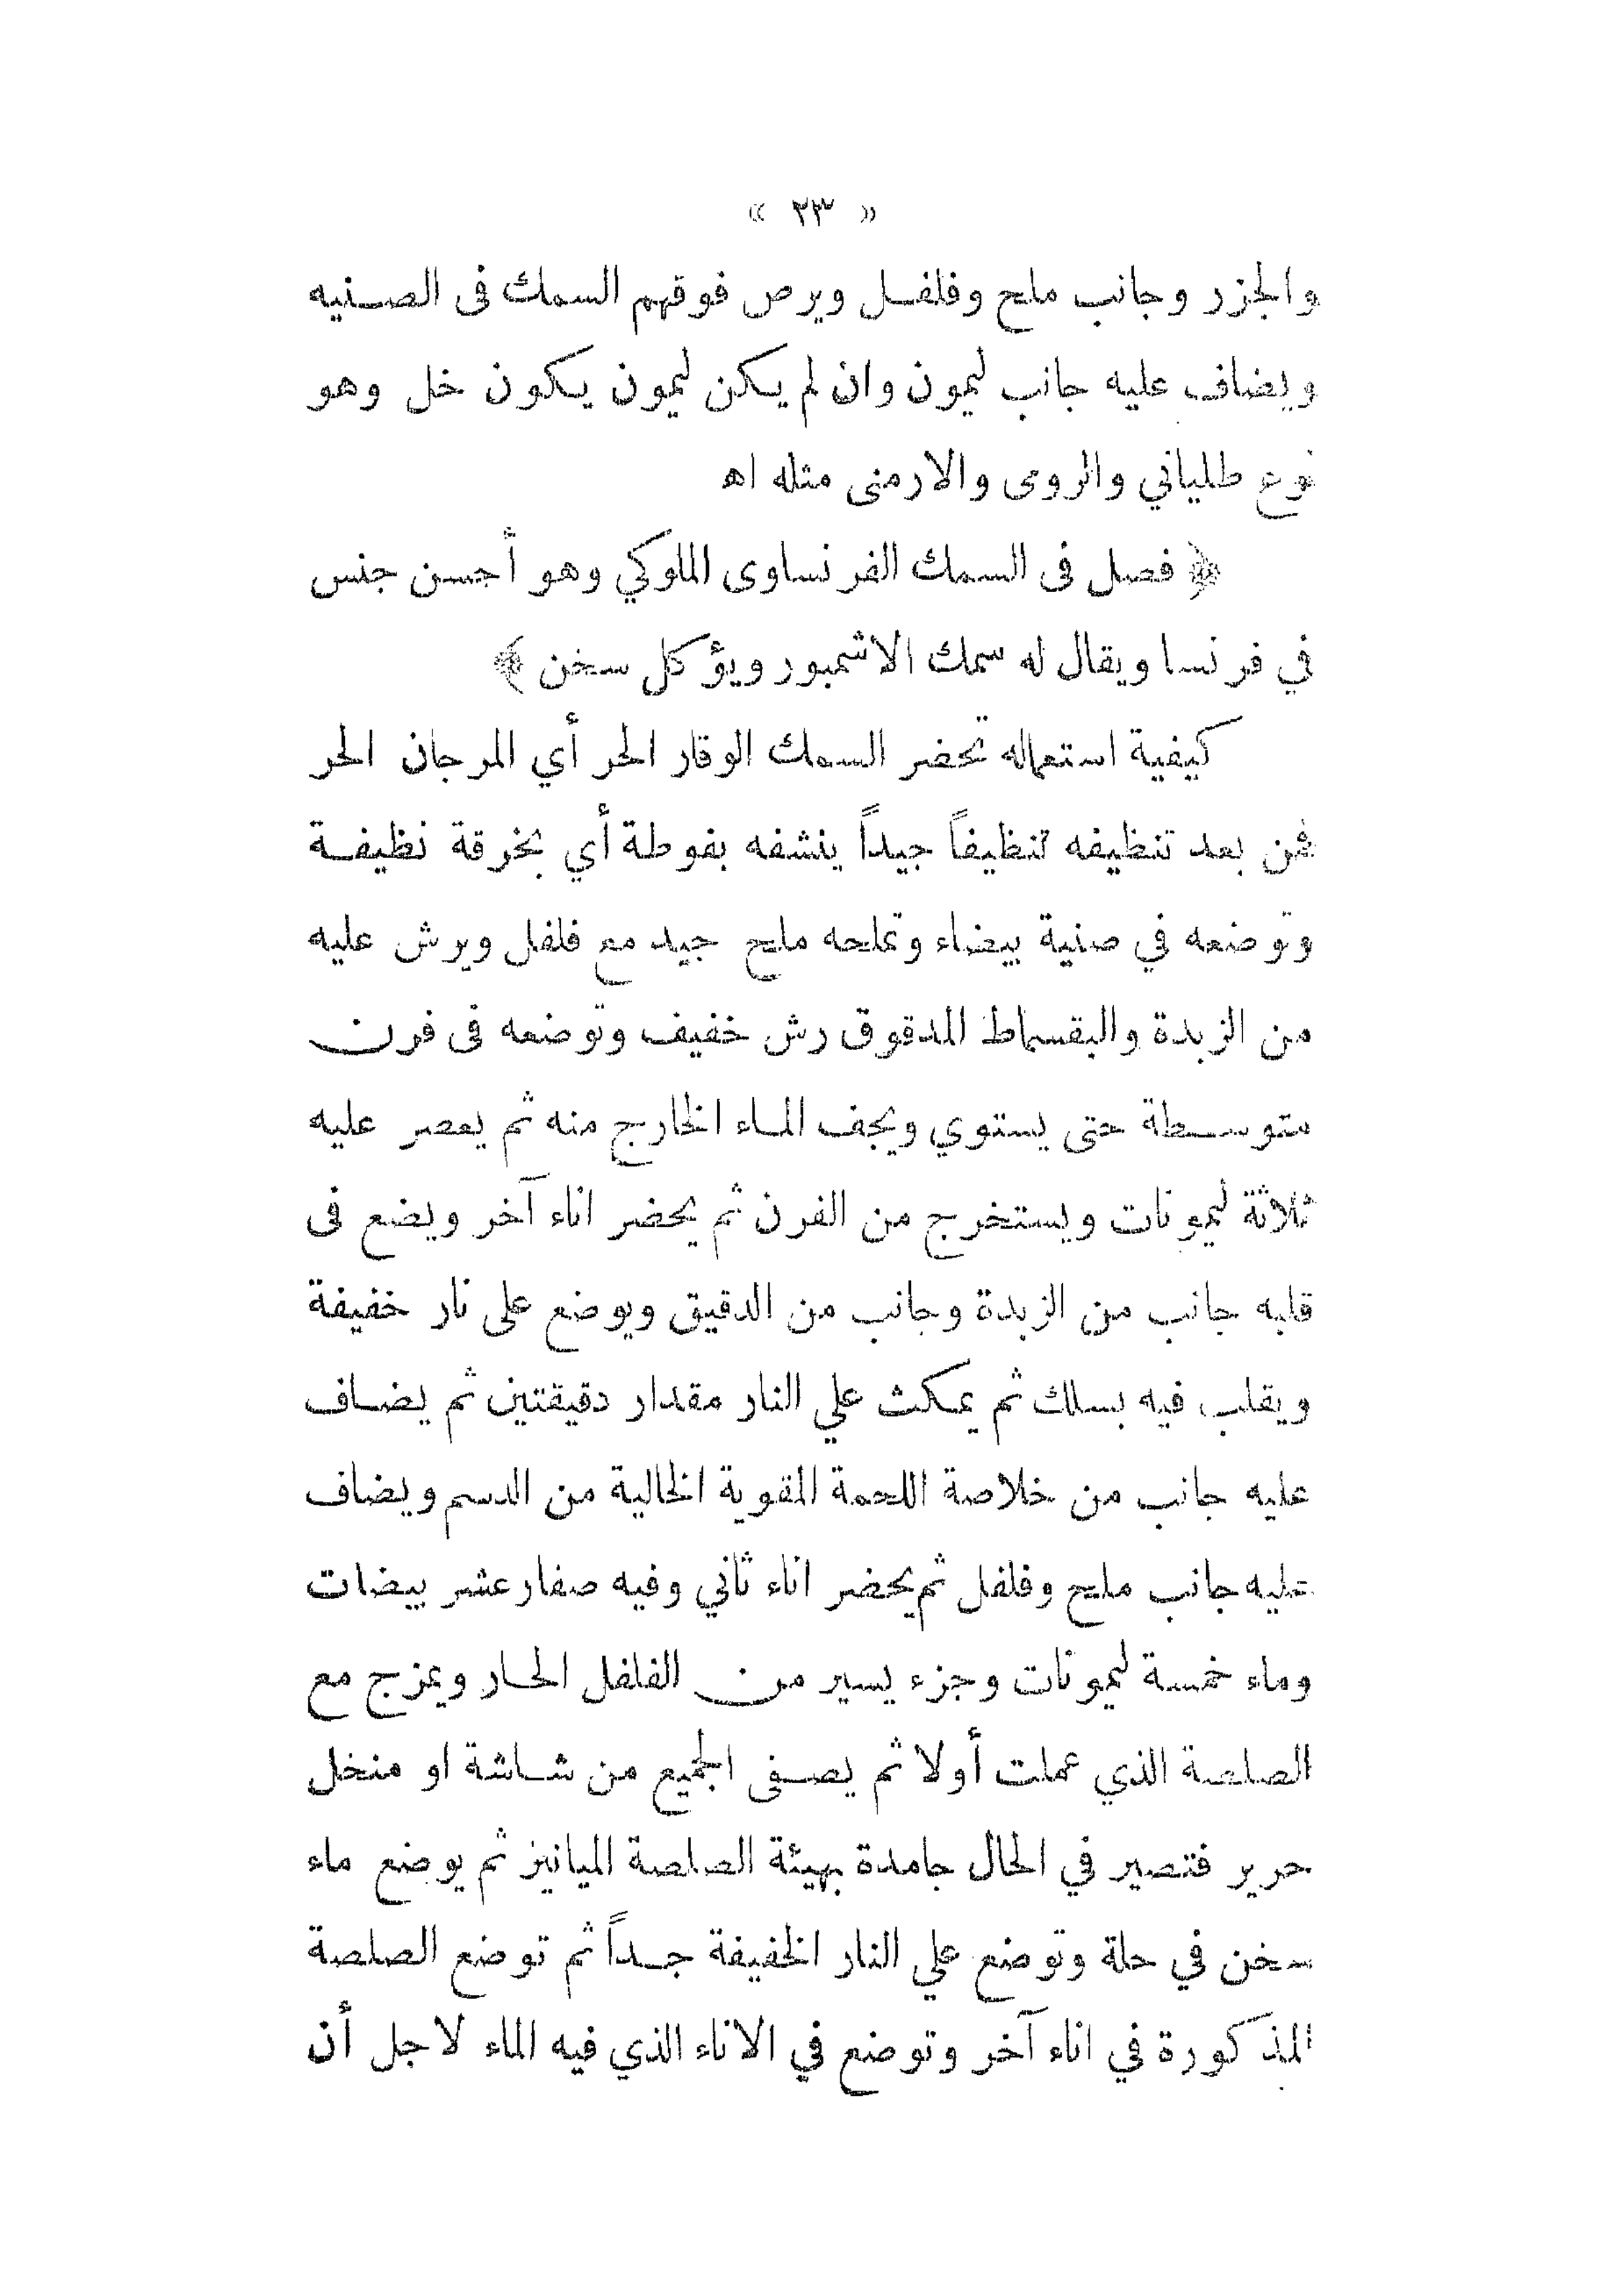 « ٢٣ »
والجزر وجانب ملح وفلفل ويرص فوقهم السمك فى الصنيه
ويضاف عليه جانب ليمون وان لم يكن ليمون يكون خل وهو
نوع طلياني والرومى والارمنى مثله اه
﴿ فصل فى السمك الفرنساوى الملوكي وهو أحسن جنس
في فرنسا ويقال له سمك الاشمبور ويؤكل سخن ﴾
كيفية استعماله تحضر السمك الوقار الحر أي المرجان الحر
فمن بعد تنظيفه تنظيفاً جيداً ينشفه بفوطة أي بخرقة نظيفة
وتوضعه في صنية بيضاء وتملحه ملح جيد مع فلفل ويرش عليه
من الزبدة والبقسماط المدقوق رش خفيف وتوضعه فى فرن
متوسطة حتى يستوي ويجف الماء الخارج منه ثم يعصر عليه
ثلاثة ليمونات ويستخرج من الفرن ثم يحضر اناء آخر ويضع فى
قلبه جانب من الزبدة وجانب من الدقيق ويوضع على نار خفيفة
ويقلب فيه بسلك ثم يمكث علي النار مقدار دقيقتين ثم يضاف
عليه جانب من خلاصة اللحمة المقوية الخالية من الدسم ويضاف
عليه جانب ملح وفلفل ثم يحضر اناء ثاني وفيه صفار عشر بيضات
وماء خمسة ليمونات وجزء يسير من الفلفل الحار ويمزج مع
الصلصة الذي عملت أولا ثم يصفى الجميع من شاشة او منخل
حرير فتصير في الحال جامدة بهيئة الصلصة الميانيز ثم يوضع ماء
سخن في حلة وتوضع علي النار الخفيفة جداً ثم توضع الصلصة
المذكورة في اناء آخر وتوضع في الاناء الذي فيه الماء لاجل أن